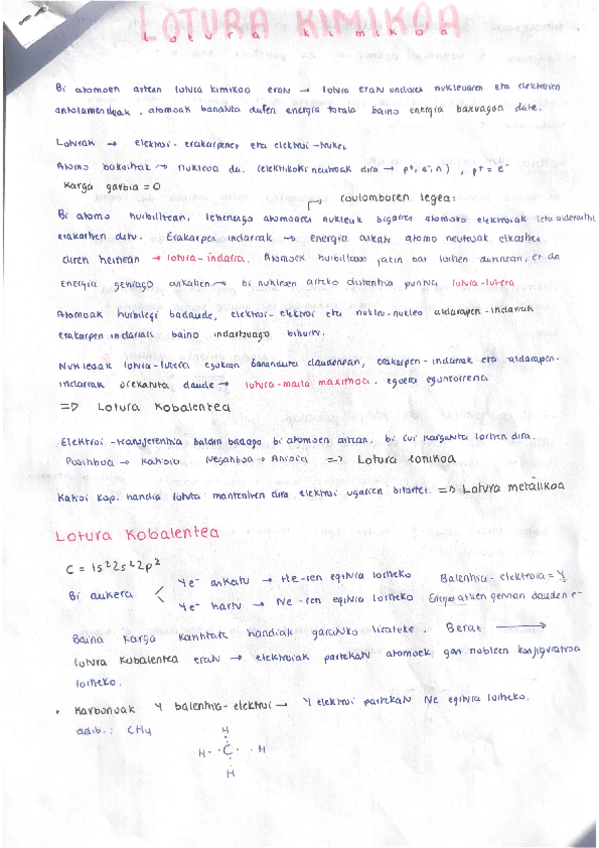 LOTURA KIMIKOA
Lotura kimikoa
Bi atomoen artean lotura kimikoa eratu → lotura eratu ondoren nukleoaren eta elektroien
antolamenduak, atomoak bananduta duten energia totala baino energia baxuagoa dute.
Loturak → elektroi-erakarpenez eta elektroi-
Atomo bakoitzak → nukleoa du. (elektrikoki neutroak dira → p⁺, e⁻, n), p⁺ = e⁻
Karga garbia = 0
coulomboren legea:
Bi atomo hurbiltzean, lehenengo atomoaren nukleoak bigarren atomoko elektroiak (eta alderantziz)
erakarhen ditu. Erakarpen indarrak → energia askatu atomo neutroak elkartzen
diren heinean → lotura-indarra. Atomoek hurbiltzean jarri bat lortzen dutenean, ez da
energia gehiago askatzen → bi nukleoen arteko distantzia puntua lotura-luzera
Atomoak hurbilegi badaude, elektroi-elektroi eta nukleo-nukleo aldarapen-indarrak
erakarpen indarrak baino indartsuago bihurtu.
Nukleoak lotura-luzera egokian bananduta daudenean, erakarpen-indarrak eta aldarapen-
indarrak orekatuta daude → lotura-maila maximoa. egoera egonkorrena
=> Lotura Kobalentea
Elektroi-transferentzia baldin badago bi atomoen artean, bi ioi kargatuta lortzen dira.
Positiboa → Katioia Negatiboa → Anioia => Lotura ionikoa
Katioi kop. handia lotuta mantentzen dira elektroi ugarien bitartez. => Lotura metalikoa
Lotura Kobalentea
C = 1s² 2s² 2p²
Bi aukera < 4e⁻ askatu → He-ren egitura lortzeko Balentzia-elektroia = 4
4e⁻ hartu → Ne-ren egitura lortzeko Energia azken geruzan dauden e⁻
Baina karga kantitate handiak garatuko lirateke. Beraz →
lotura kobalentea eratu → elektroiak partekatu atomoek gas nobleen konfigurazioa
lortzeko.
• Karbonoak 4 balentzia-elektroi → 4 elektroi partekatu Ne egitura lortzeko.
adib.: CH₄
H
H · C · H
H